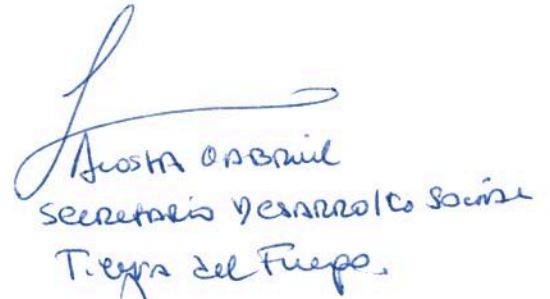 Acosta Gabriel
Secretario Desarrollo Social
Tierra del Fuego.